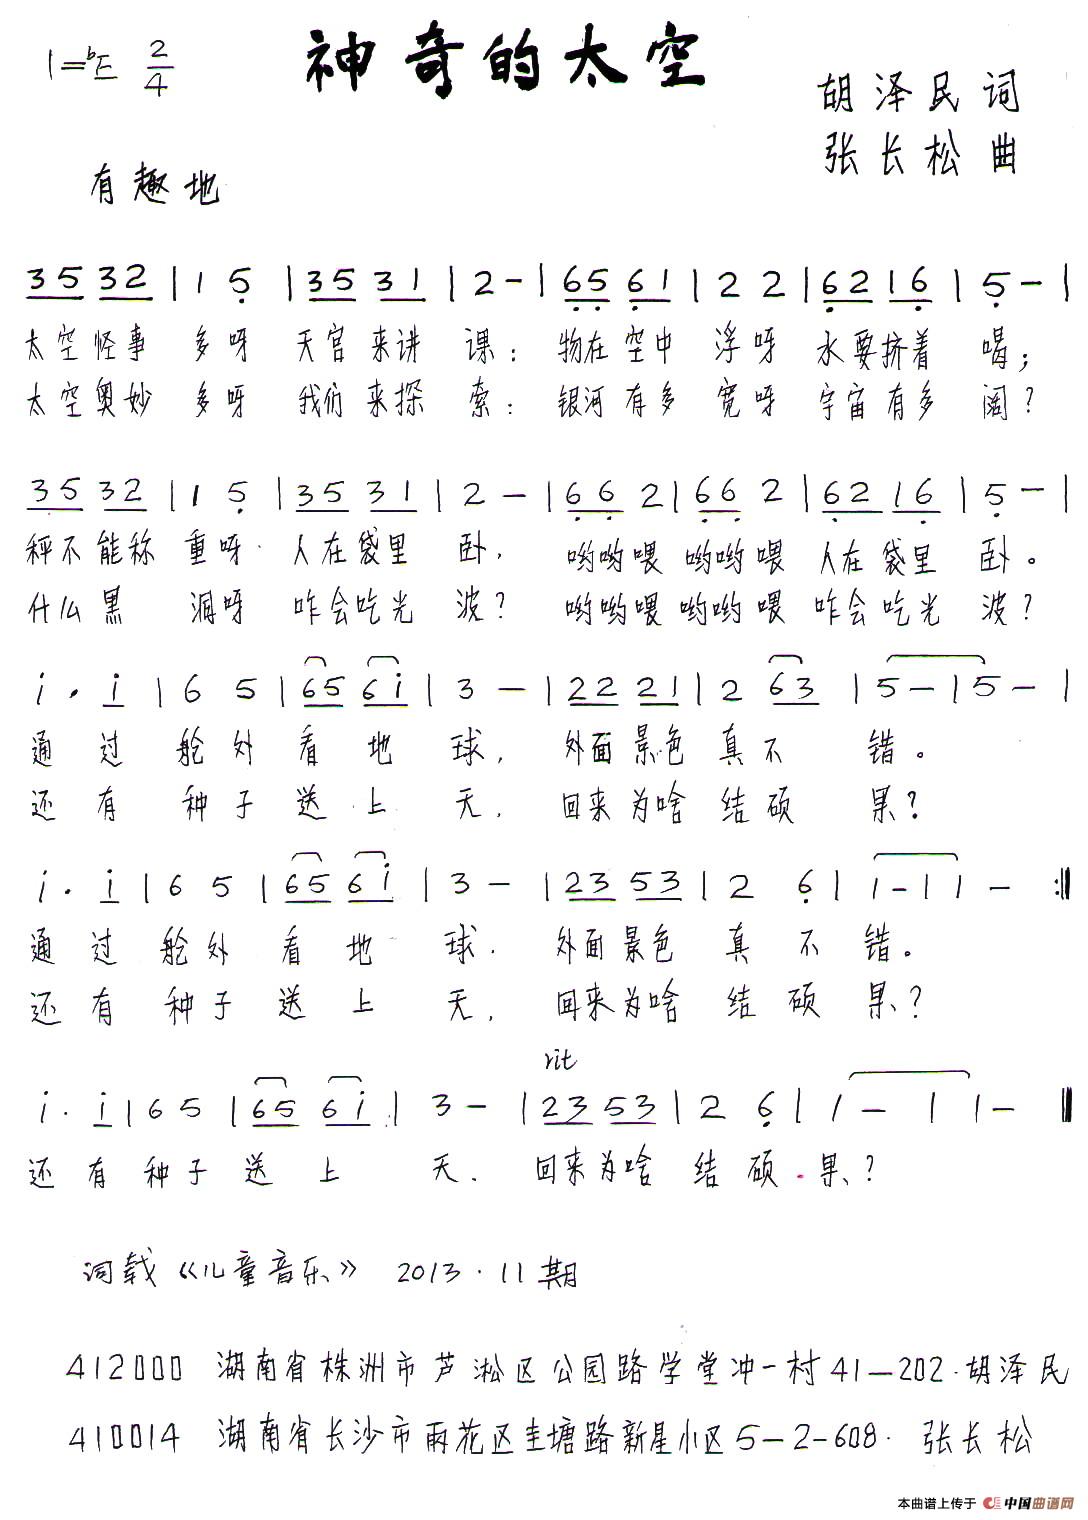 1=ᵇE 2/4
神奇的太空
胡泽民词
张长松曲
有趣地
35 32 | 1 5̣ | 35 31 | 2 - | 6̣5̣ 6̣1 | 2 2 | 6̣2 16̣ | 5̣ - |
太空怪事 多呀 天宫来讲 课: 物在空中 浮呀 水要挤着 喝;
太空奥妙 多呀 我们来探 索: 银河有多 宽呀 宇宙有多 阔?
35 32 | 1 5̣ | 35 31 | 2 - | 6̣6̣ 2 | 6̣6̣ 2 | 6̣2 16̣ | 5̣ - |
秤不能称 重呀. 人在袋里 卧, 哟哟喂 哟哟喂 人在袋里 卧。
什么黑 洞呀 咋会吃光 波? 哟哟喂 哟哟喂 咋会吃光 波?
i̇. i̇ | 6 5 | 65 6i̇ | 3 - | 22 21 | 2 63 | 5 - | 5 - |
通过 舱外 看地 球, 外面景色 真不 错。
还有 种子 送上 天, 回来为啥 结硕 果?
i̇. i̇ | 6 5 | 65 6i̇ | 3 - | 23 53 | 2 6̣ | 1 - | 1 - :‖
通过 舱外 看地 球. 外面景色 真不 错。
还有 种子 送上 天, 回来为啥 结硕 果?
rit
i̇. i̇ | 6 5 | 65 6i̇ | 3 - | 23 53 | 2 6̣ | 1 - | 1 - ‖
还有 种子 送上 天. 回来为啥 结硕 果?
词载《儿童音乐》 2013.11期
412000 湖南省株洲市芦淞区公园路学堂冲一村41—202.胡泽民
410014 湖南省长沙市雨花区圭塘路新星小区5—2—608. 张长松
本曲谱上传于 中国曲谱网